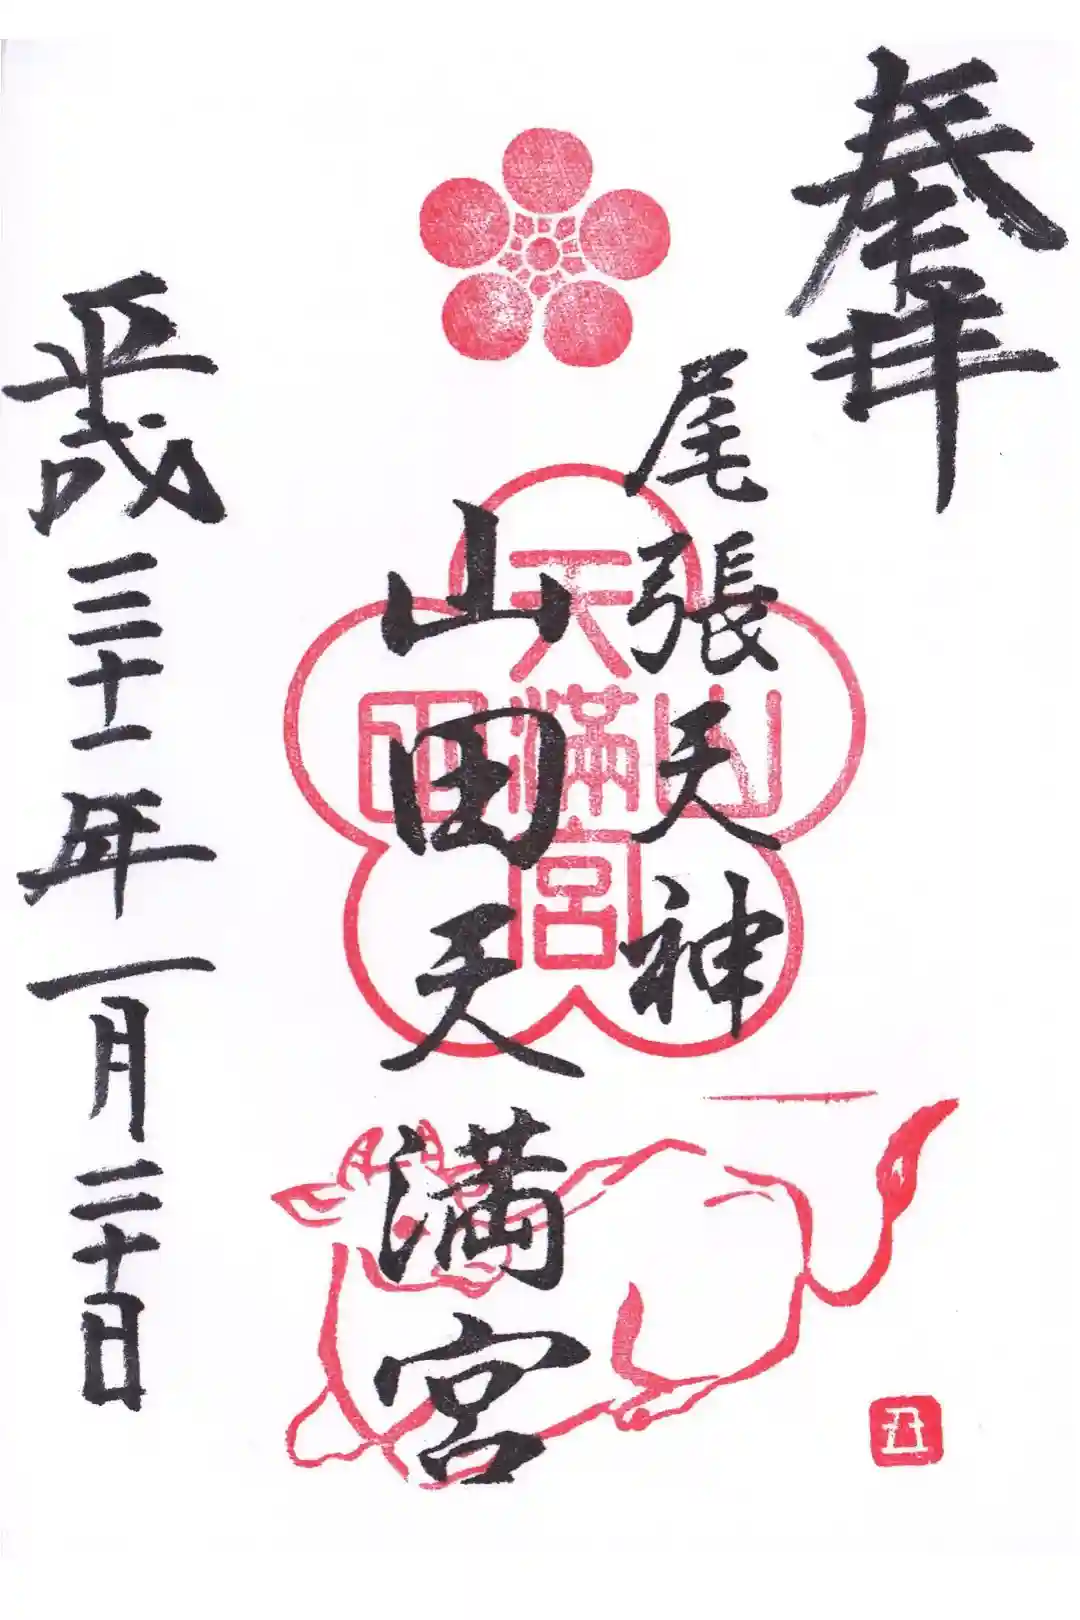 奉拝
尾張天神
山田天満宮
平成三十一年一月二十日
天
山満田
宮
丑